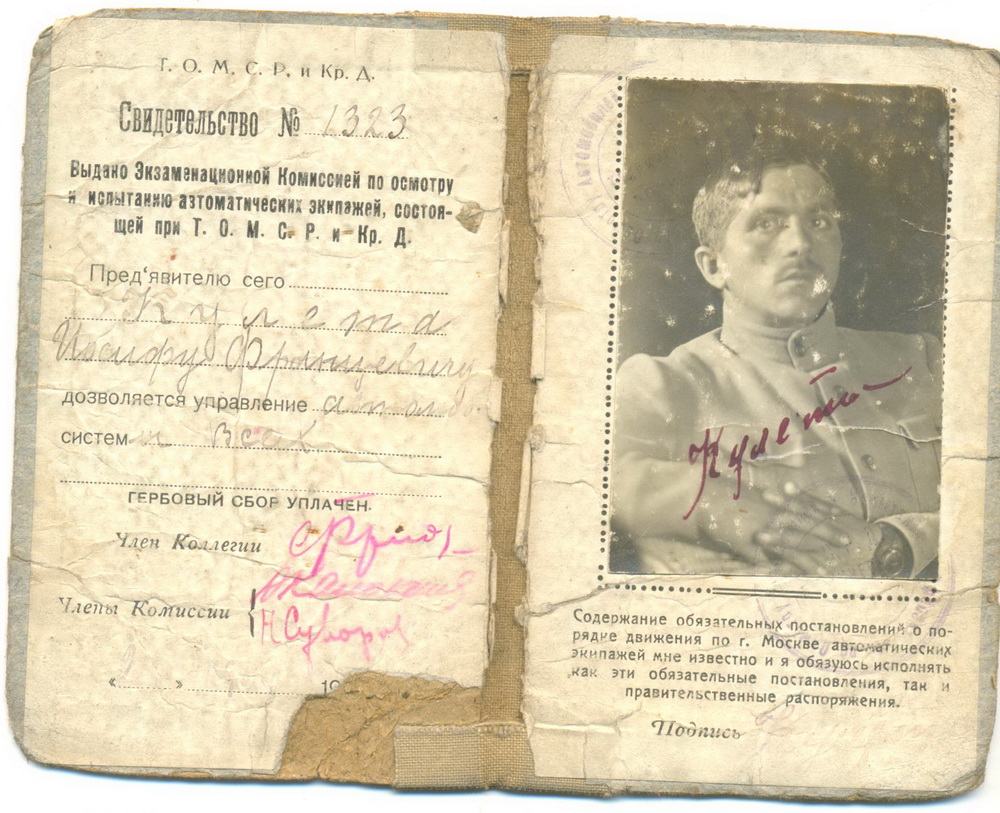 Т. О. М. С. Р. и Кр. Д.
Свидетельство № 1323
Выдано Экзаменационной Комиссией по осмотру
и испытанию автоматических экипажей, состоя-
щей при Т. О. М. С. Р. и Кр. Д.
Пред'явителю сего
Кулета
Иосифу Францевичу
дозволяется управление
систем всех
ГЕРБОВЫЙ СБОР УПЛАЧЕН.
Член Коллегии
Члены Комиссии
Н Суворов
« » 19
Кулета
Содержание обязательных постановлений о по-
рядке движения по г. Москве автоматических
экипажей мне известно и я обязуюсь исполнять
как эти обязательные постановления, так и
правительственные распоряжения.
Подпись